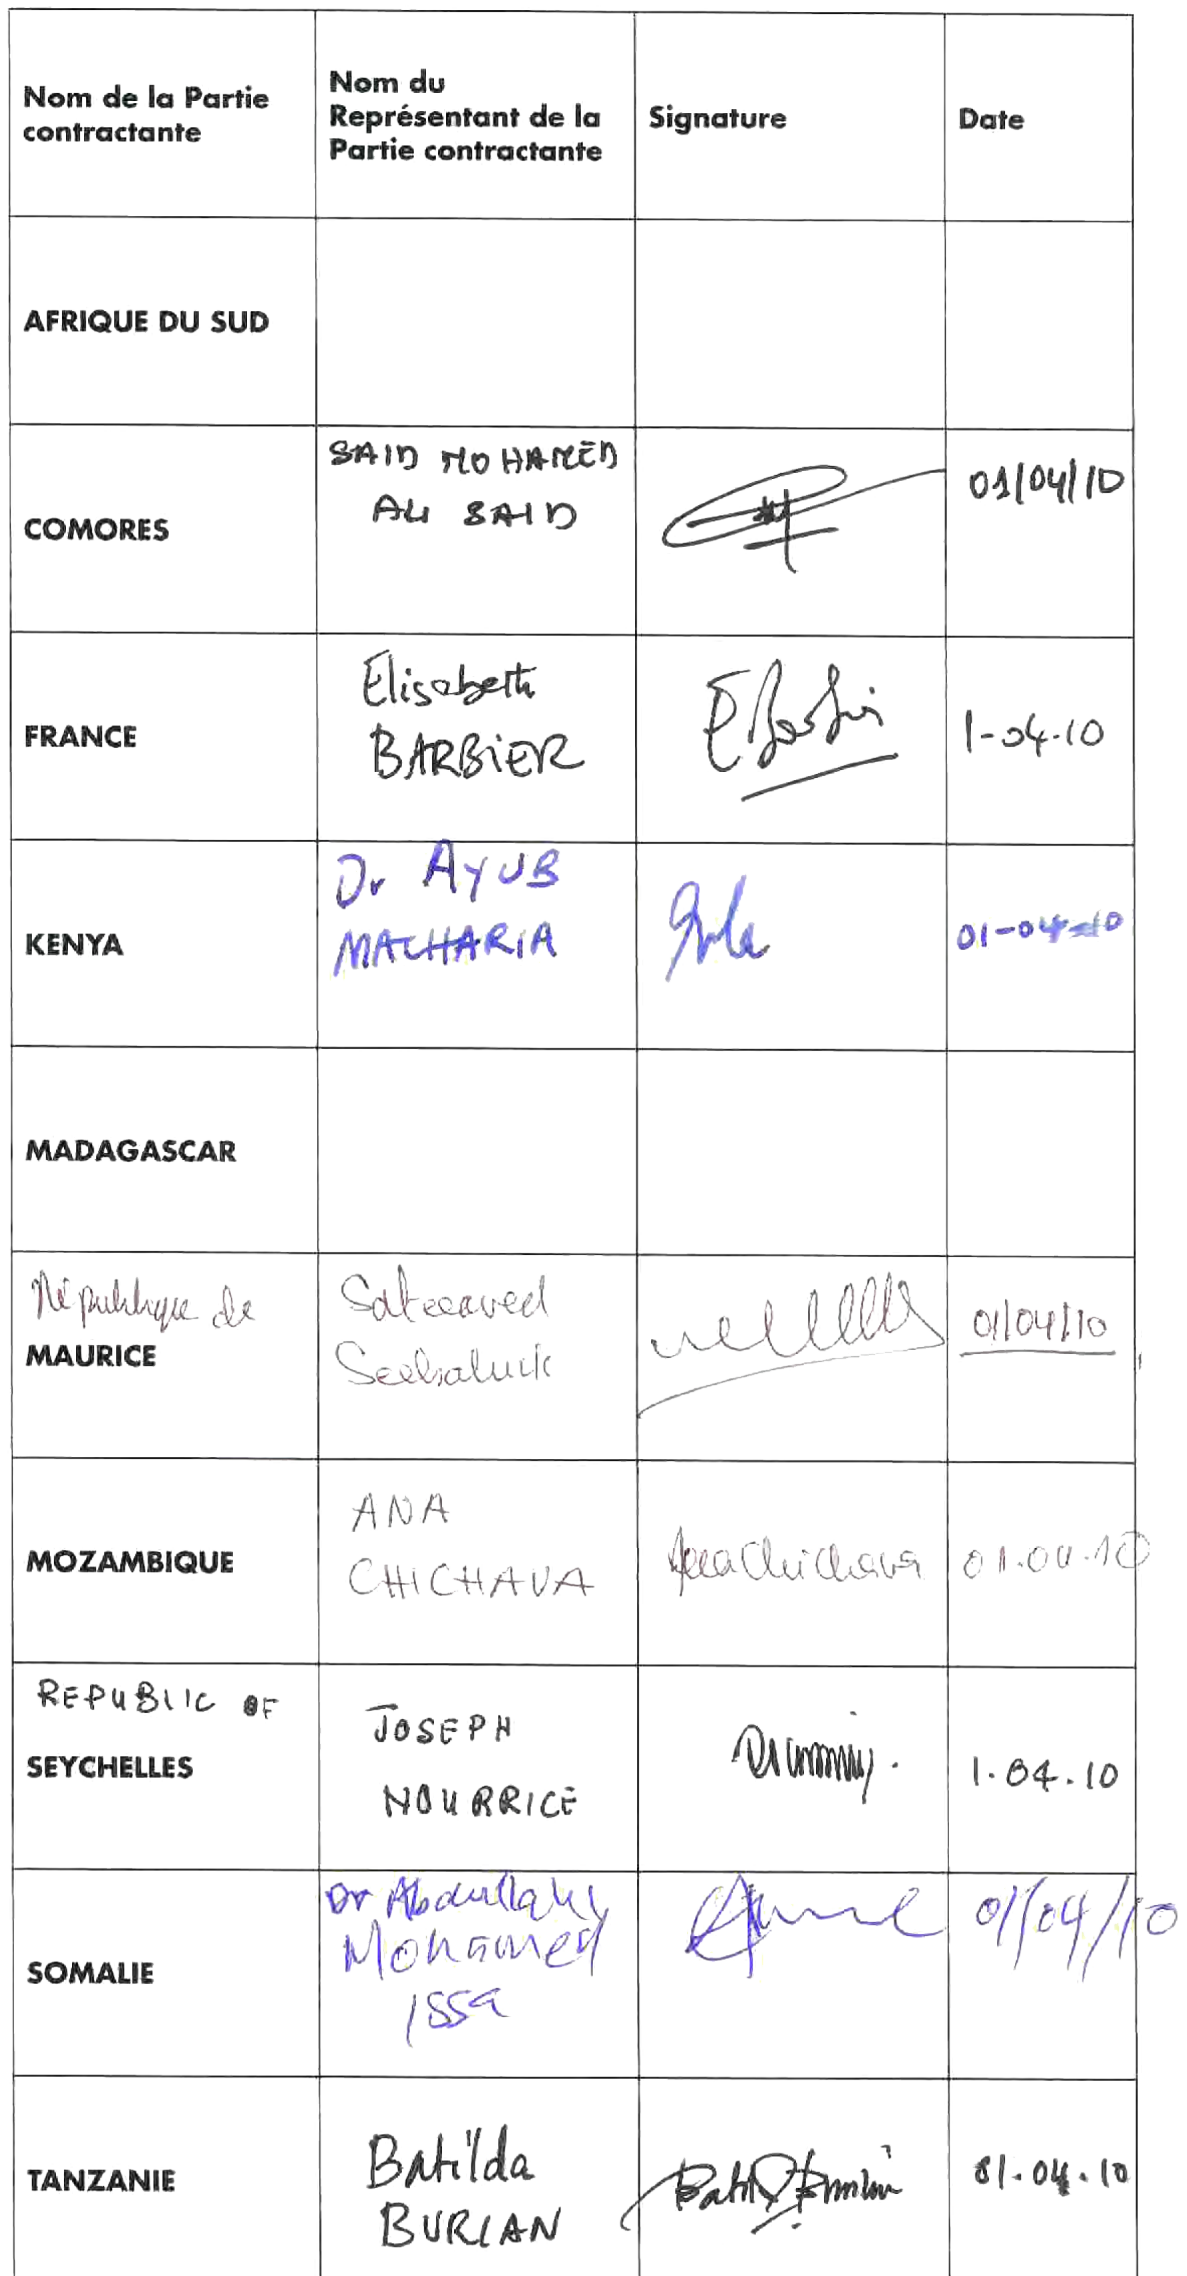 Nom de la Partie
contractante
Nom du
Représentant de la
Partie contractante
Signature
Date
AFRIQUE DU SUD
COMORES
SAID MOHAMED
ALI SAID
01/04/10
FRANCE
Elisabeth
BARBIER
E Barbier
1-04-10
KENYA
Dr AYUB
MACHARIA
01-04-10
MADAGASCAR
République de
MAURICE
Sateeaved
Seebaluck
01/04/10
MOZAMBIQUE
ANA
CHICHAVA
Ana Chichava
01.04.10
REPUBLIC OF
SEYCHELLES
JOSEPH
NOURRICE
1.04.10
SOMALIE
Dr Abdullahi
Mohamed
Issa
01/04/10
TANZANIE
Batilda
BURIAN
01.04.10